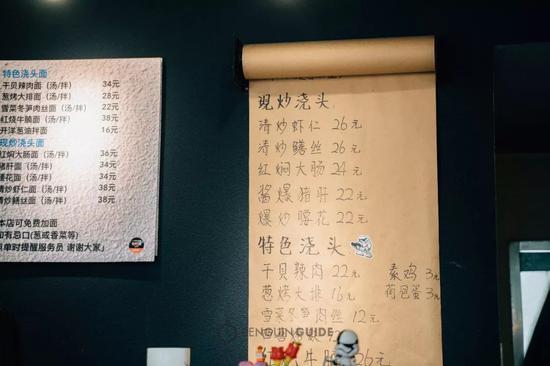 特色浇头面
干贝辣肉面（汤/拌） 34元
葱烤大排面（汤/拌） 28元
雪菜冬笋肉丝面（汤/拌） 22元
红烧牛腩面（汤/拌） 38元
开洋葱油拌面 16元
现炒浇头面
红焖大肠面（汤/拌） 36元
猪肝面（汤/拌） 34元
腰花面（汤/拌） 34元
清炒虾仁面（汤/拌） 38元
清炒鳝丝面（汤/拌） 38元
本店可免费加面
如有忌口(葱或香菜等)
点单时提醒服务员 谢谢大家」
現炒浇头
清炒虾仁 26元
清炒鳝丝 26元
红焖大肠 24元
酱爆猪肝 22元
爆炒腰花 22元
特色浇头
干贝辣肉 22元 素鸡 3元
葱烤大排 16元 荷包蛋 3元
雪菜冬笋肉丝 12元
PENGUIN GUIDE
牛 26元